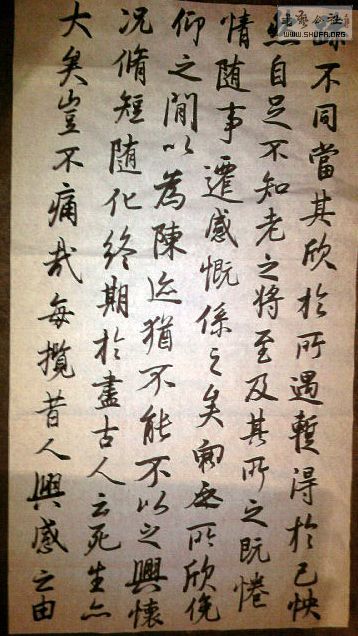 不同當其欣於所遇暫得於己怏
然自足不知老之將至及其所之既惓
情随事遷感慨係之矣向之所欣俛
仰之間以為陳迹猶不能不以之興懷
况脩短隨化終期於盡古人云死生亦
大矣豈不痛哉每攬昔人興感之由
WWW.SHUFA.ORG